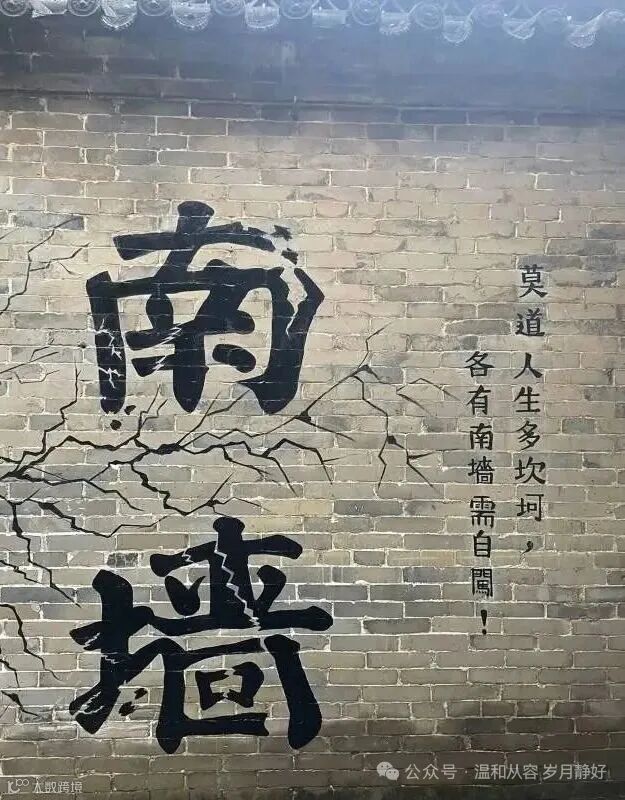 南墙
莫道人生多坎坷，
各有南墙需自闖！
公众号 · 温和从容 岁月静好
大数跨境